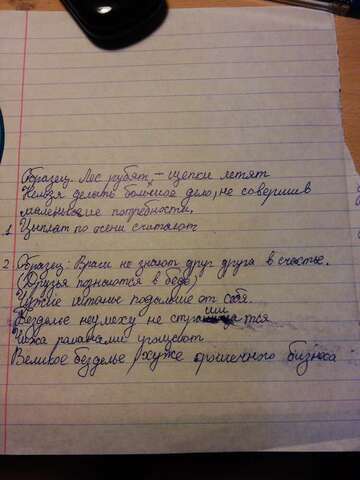 Образец: Лес рубят, – щепки летят
Нельзя делать большое дело, не совершив
маленькие потребности.
1. Цыплат по осени считают
2. Образец: Враги не знают друг друга в счастье.
(Друзья познаются в беде)
Чужие штаны подальше от себя.
Безделье неумеху не
Чижа рапанами угощают
Великое безделье хуже крошечного бизнеса